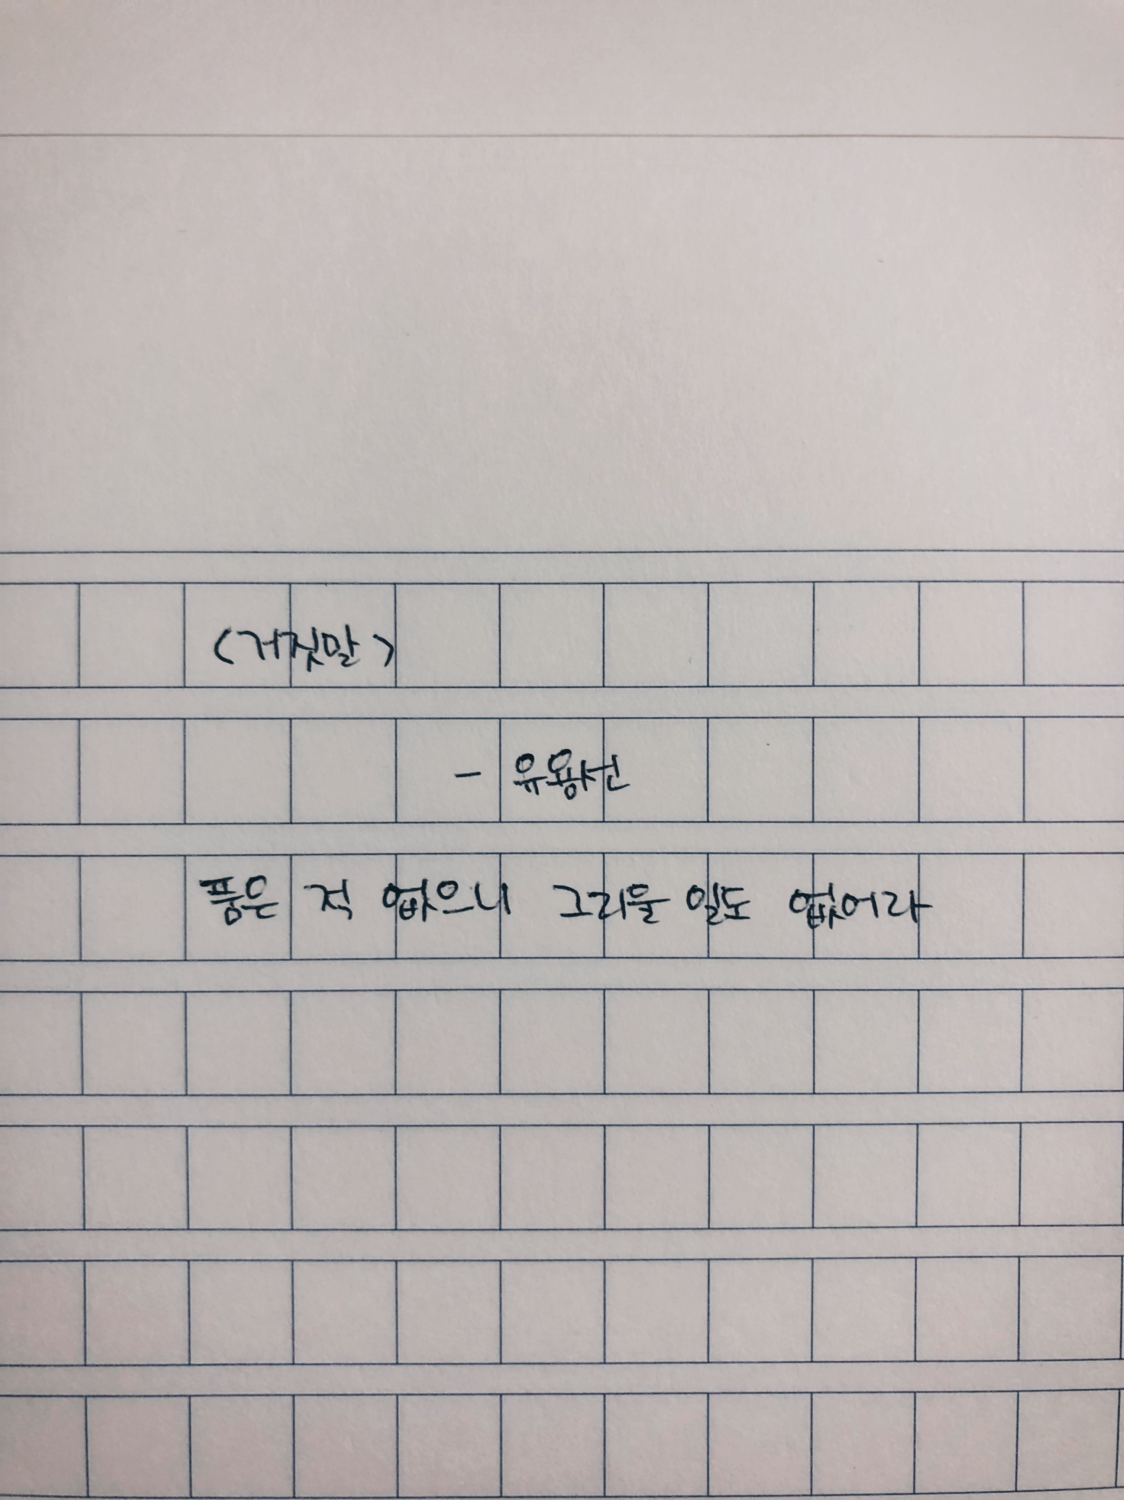 <거짓말>
- 유용선
품은 적 없으니 그리울 일도 없어라